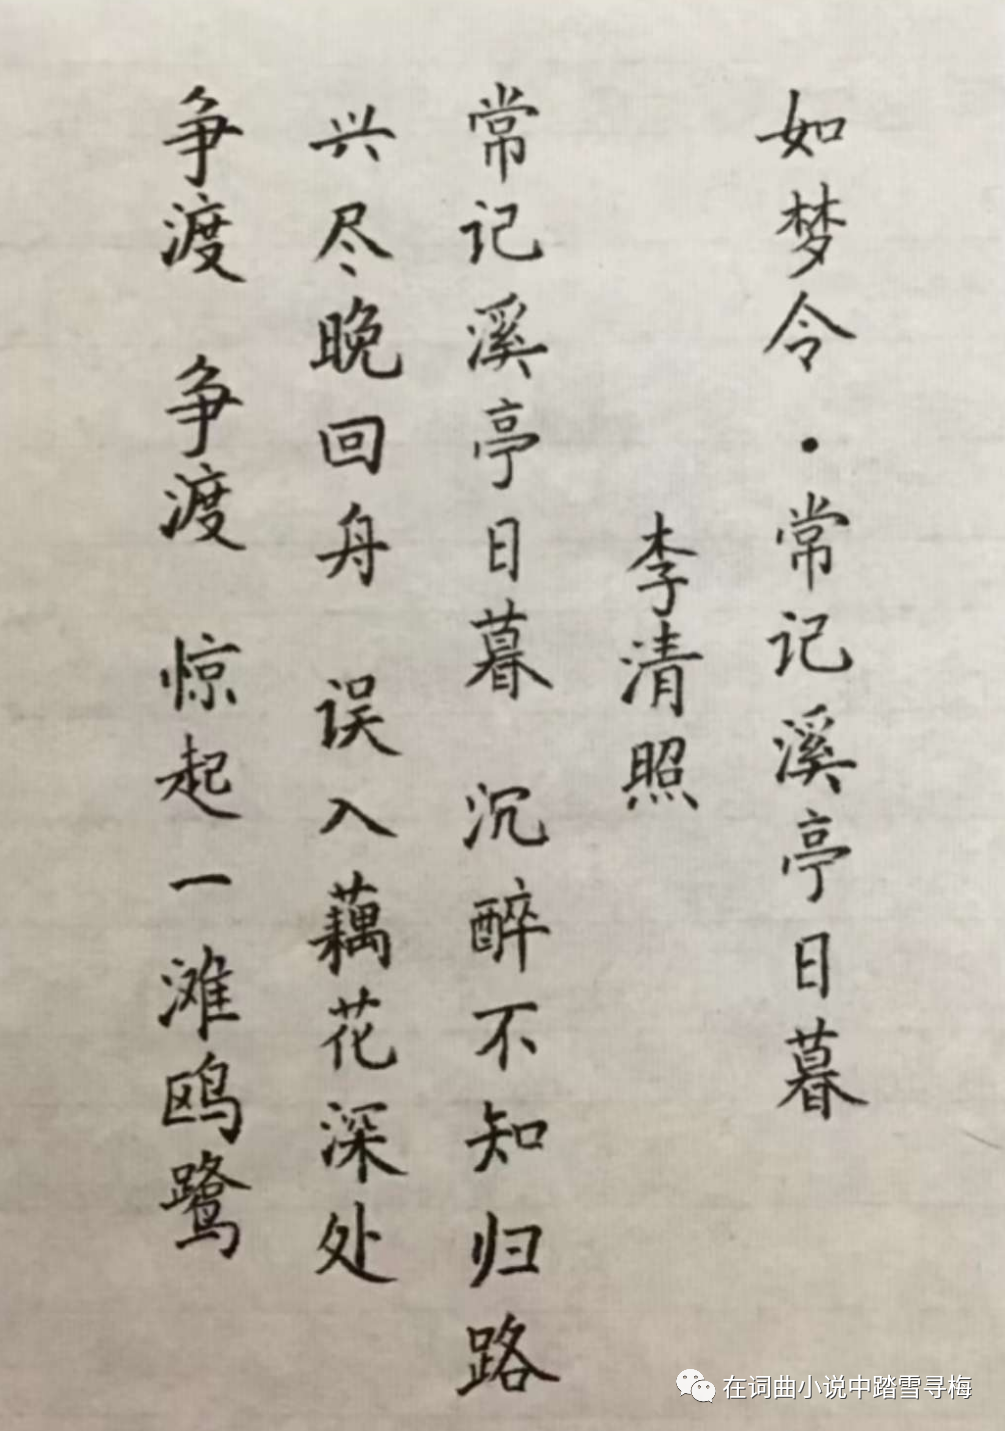 如梦令·常记溪亭日暮
李清照
常记溪亭日暮 沉醉不知归路
兴尽晚回舟 误入藕花深处
争渡 争渡 惊起一滩鸥鹭
在词曲小说中踏雪寻梅